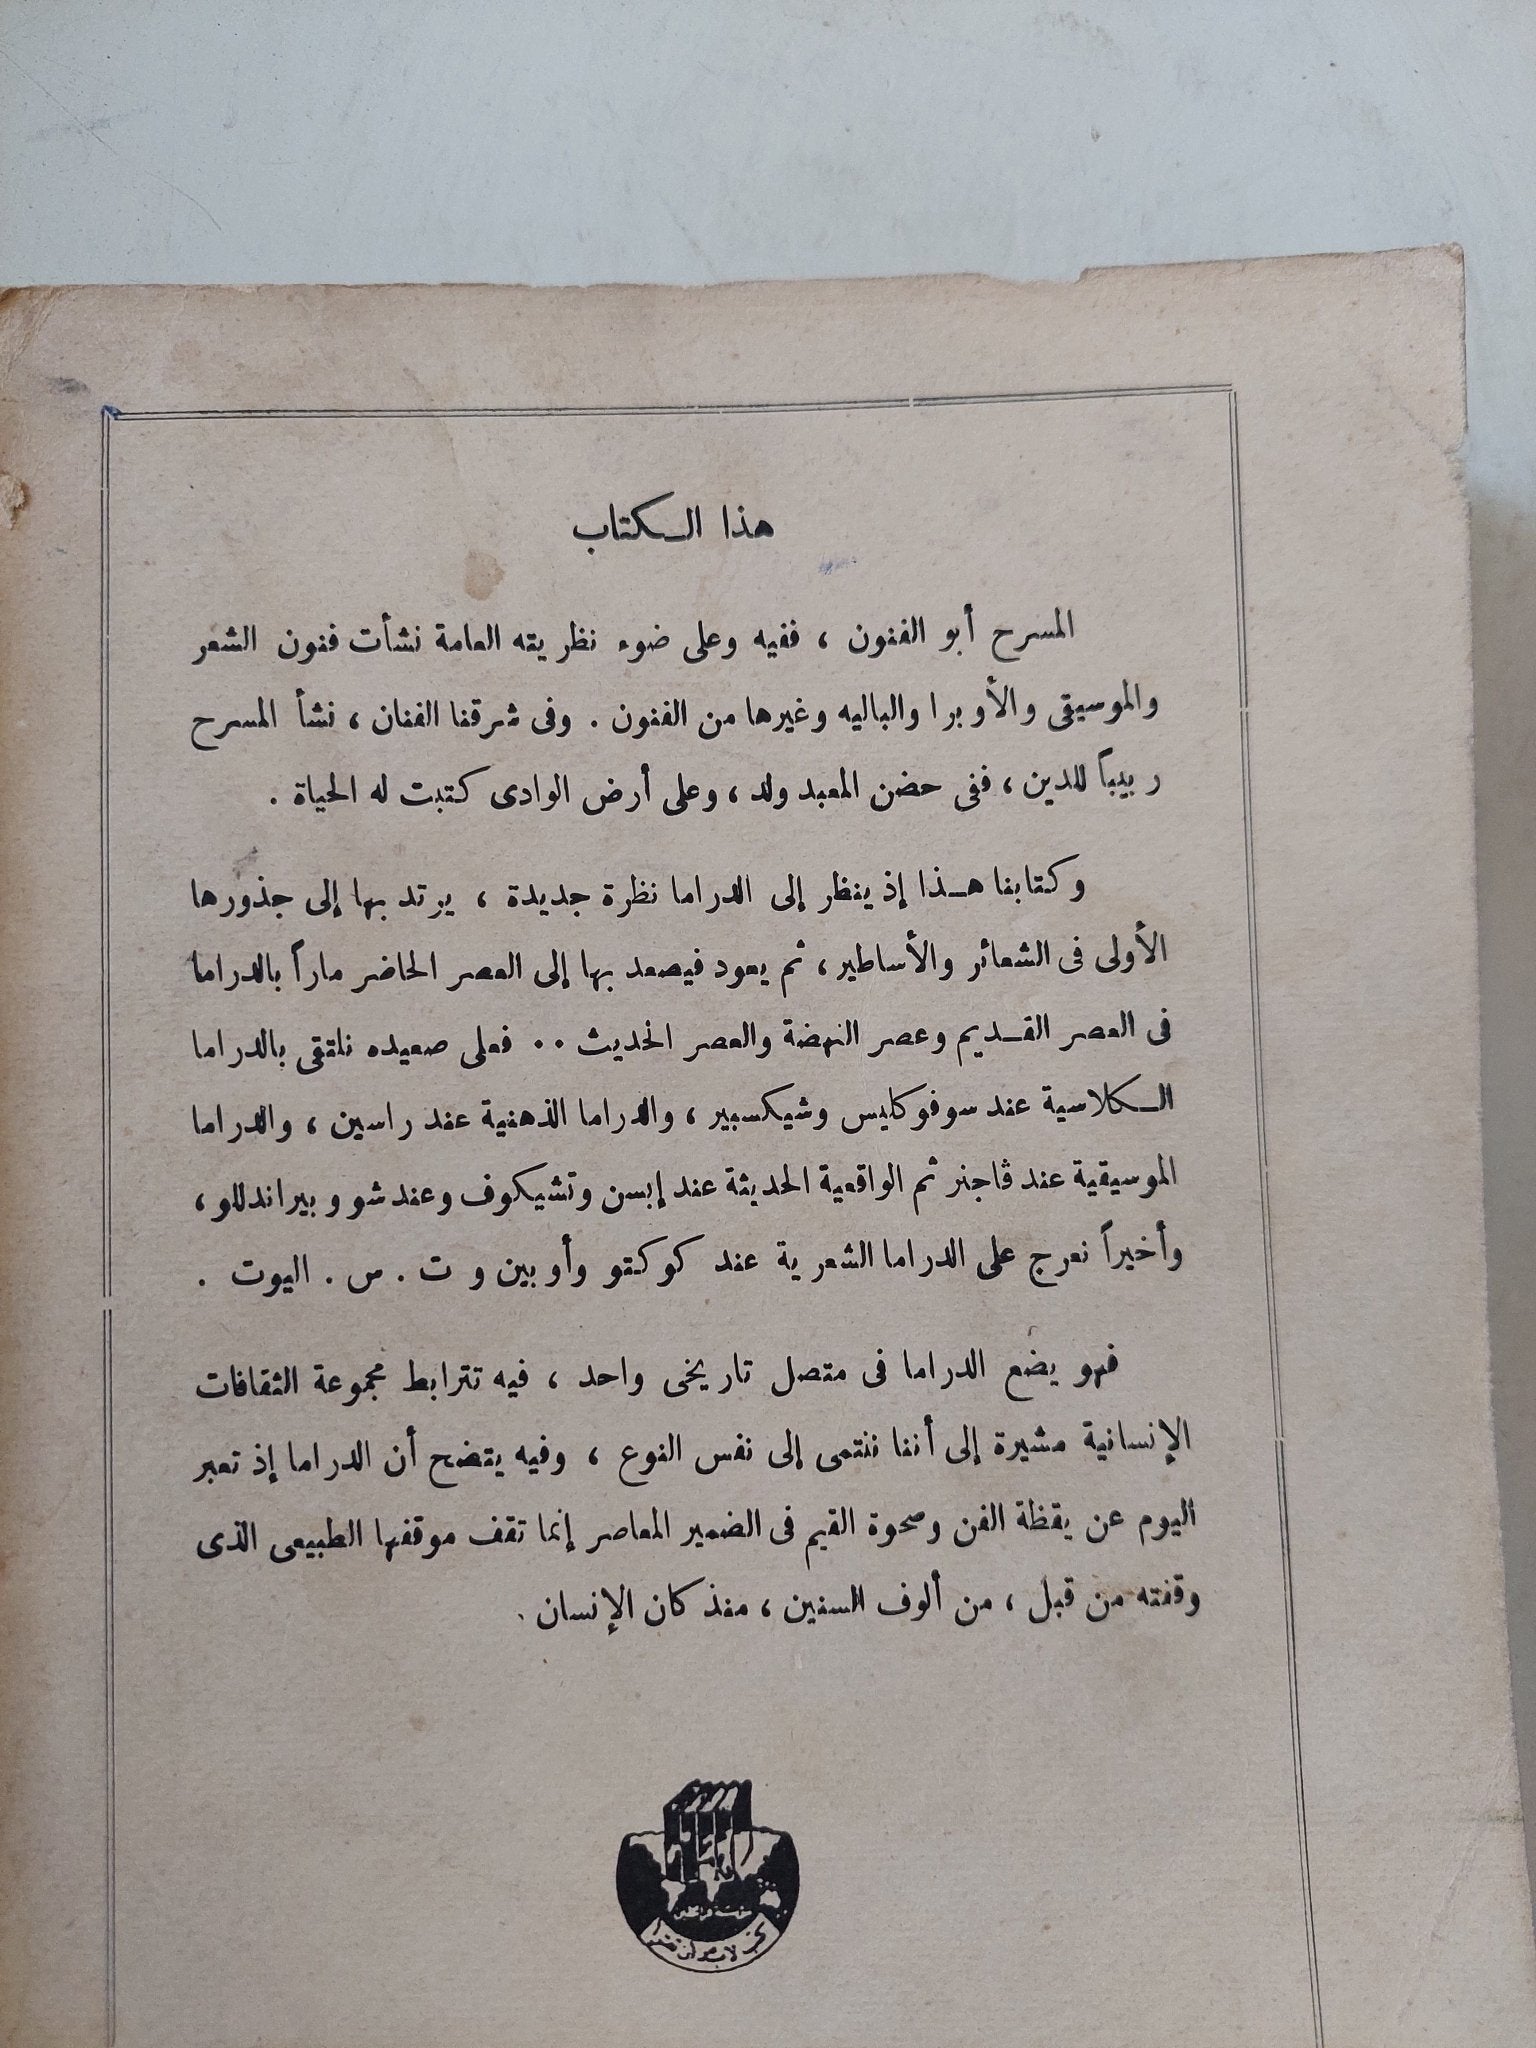 هذا الكتاب
المسرح أبو الفنون ، ففيه وعلى ضوء نظريته العامة نشأت فنون الشعر
والموسيقى والأوبرا والباليه وغيرها من الفنون . وفى شرقنا الفنان ، نشأ المسرح
ربيباً للدين ، ففى حضن المعبد ولد ، وعلى أرض الوادى كتبت له الحياة .
وكتابنا هذا إذ ينظر إلى الدراما نظرة جديدة ، يرتد بها إلى جذورها
الأولى فى الشعائر والأساطير ، ثم يعود فيصعد بها إلى العصر الحاضر ماراً بالدراما
فى العصر القديم وعصر النهضة والعصر الحديث .. فعلى صعيده نلتقى بالدراما
الكلاسية عند سوفوكليس وشيكسبير ، والدراما الذهنية عند راسين ، والدراما
الموسيقية عند ڤاجنر ثم الواقعية الحديثة عند إبسن وتشيكوف وعند شو وبيراندللو ،
وأخيراً نعرج على الدراما الشعرية عند كوكتو وأوبين و ت . س . اليوت .
فهو يضع الدراما فى متصل تاريخى واحد ، فيه تترابط مجموعة الثقافات
الإنسانية مشيرة إلى أننا ننتمى إلى نفس النوع ، وفيه يتضح أن الدراما إذ تعبر
اليوم عن يقظة الفن وصحوة القيم فى الضمير المعاصر إنما تقف موقفها الطبيعى الذى
وقفته من قبل ، من ألوف السنين ، منذ كان الإنسان .